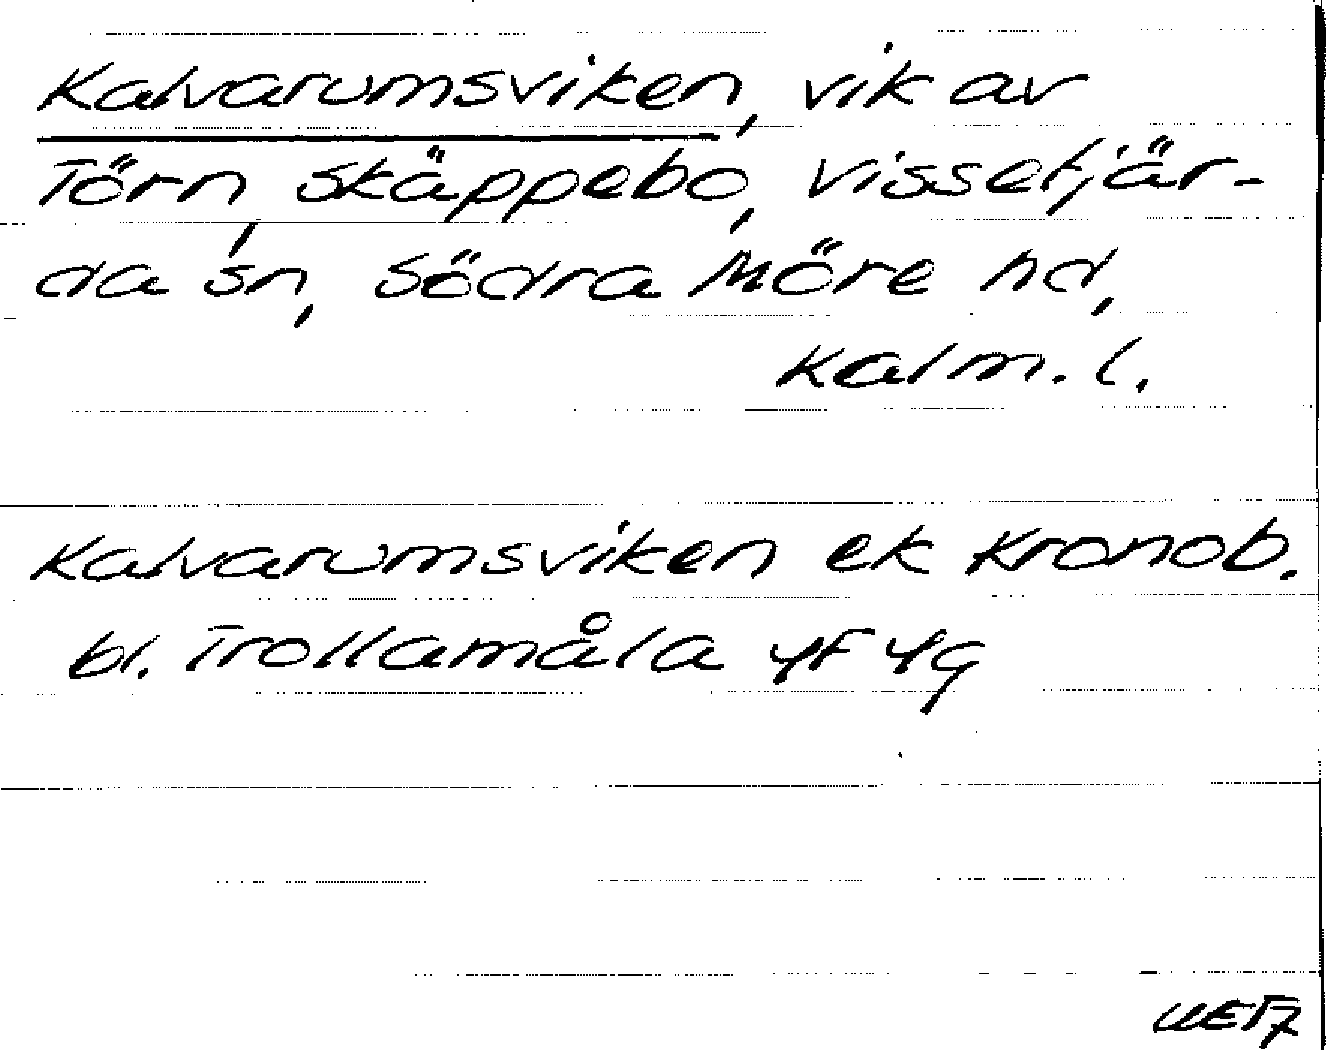 Kalvarumsviken, vik av
Törn, Skäppebo, Vissefjär-
da sn, Södra Möre hd,
Kalm. l.
Kalvarumsviken ek Kronob.
bl. Trollamåla 4F 4g